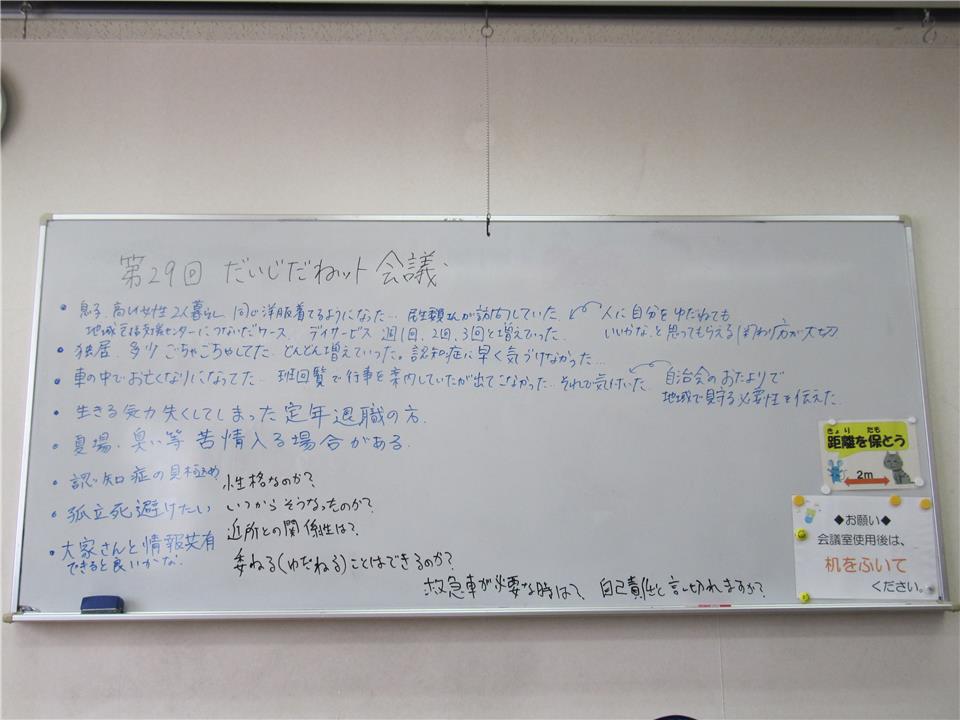 第29回 だいじだねット会議
• 息子、高れい女性2人暮らし、同じ洋服着てるようになった… 民生委員さんが訪問していた。
地域包括支援センターにつないだケース。デイサービス週1回、2回、3回と増えていった。
人に自分をゆだねても
いいかな、と思ってもらえる関わり方が大切
• 独居、多少ごちゃごちゃしてた。どんどん増えていった。認知症に早く気づけなかった…
• 車の中でお亡くなりになってた… 班回覧で行事を案内していたが出てこなかった… それで気付いた。
自治会のおたよりで
地域で見守る必要性を伝えた。
• 生きる気力失くしてしまった定年退職の方。
• 夏場、臭い等苦情入る場合がある。
• 認知症の見極め
• 孤立死避けたい
• 大家さんと情報共有
できると良いかな。
性格なのか?
いつからそうなったのか?
近所との関係性は?
委ねる(ゆだねる)ことはできるのか?
救急車が必要な時は? 自己責任と言い切れますか?
きょり たも
距離を保とう
2m
◆お願い◆
会議室使用後は、
机をふいて
ください。